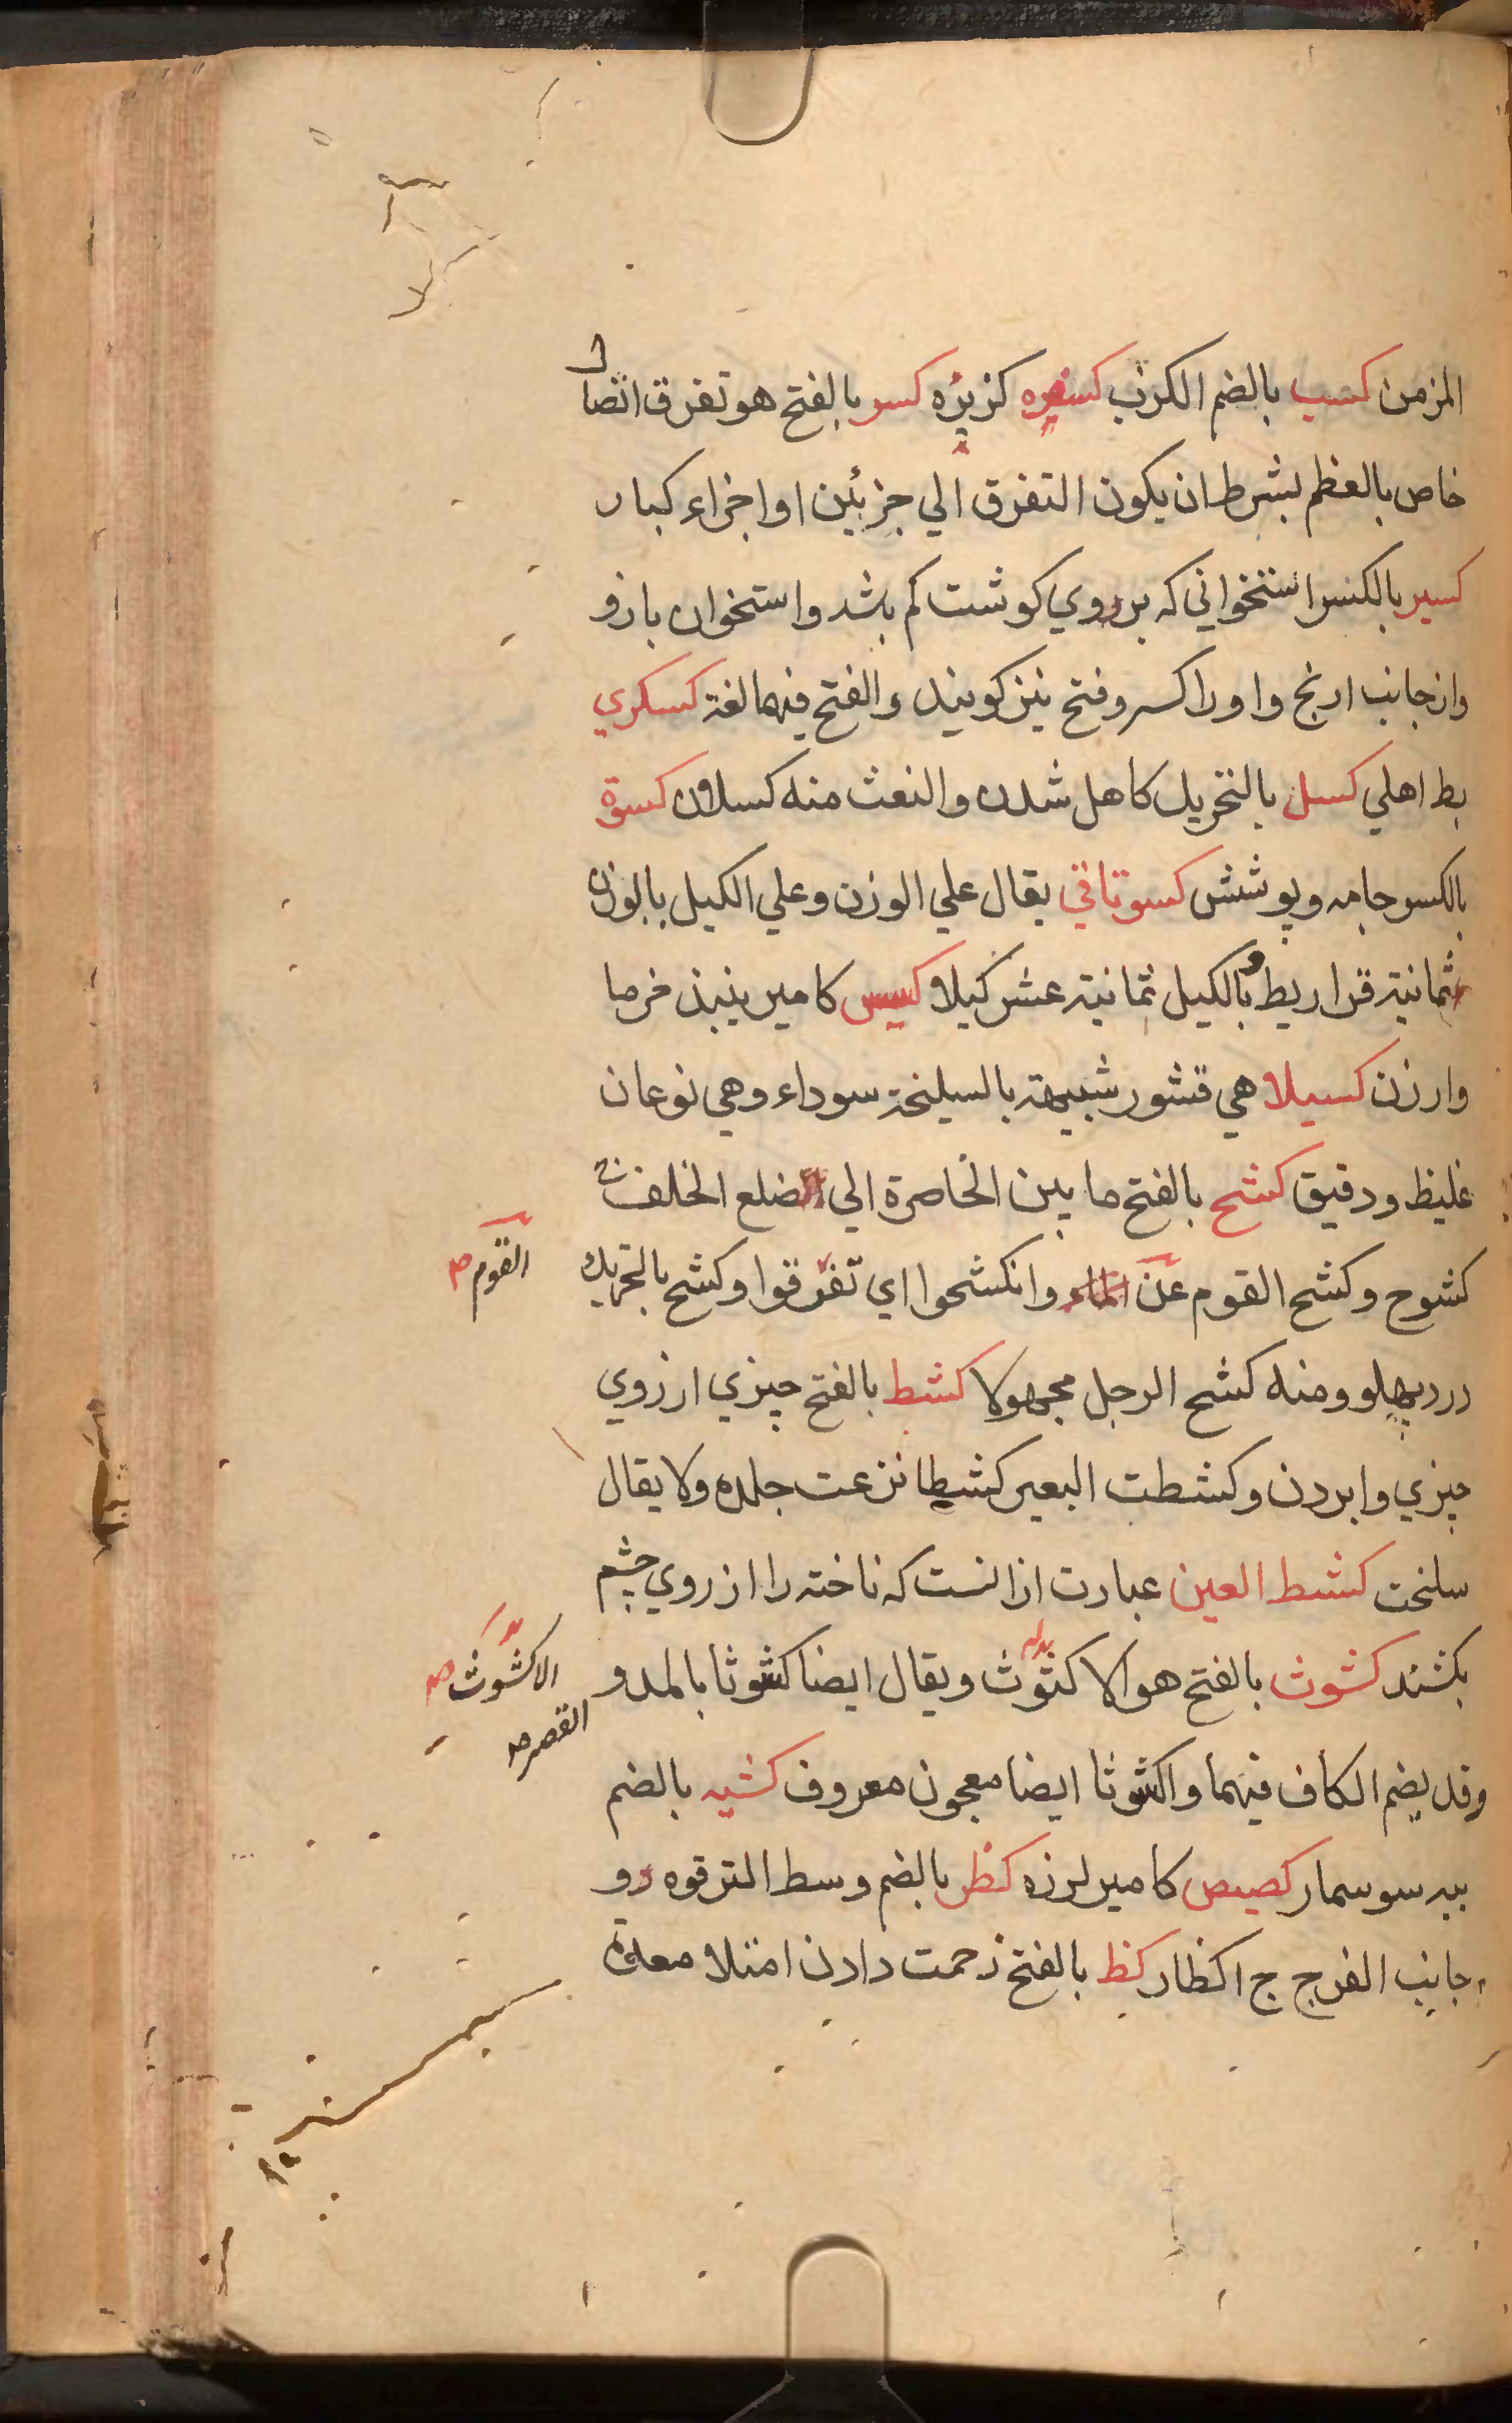 المزمن كسب بالضم الكرب كسفره كزبره كسر بالفتح هو تفرق اتصال
خاص بالعظم بشرط ان يكون التفرق الي جزئين او اجزاء كبار
كسير بالكسر استخواني كه بر روي كوشت كم بشد و استخوان بازو
واز جانب ارنج و او را كسر و فتح نيز كويند والفتح فيهما لغة كسكري
بط اهلي كسل بالتحريك كاهل شدن والنعت منه كسلان كسوة
بالكسر جامه و پوشش كسوتافي يقال علي الوزن وعلي الكيل بالوزن
ثمانية قراريط و بالكيل ثمانية عشر كيلا كسيس كامير نبيذ خرما
وارزن كسيلا هي قشور شبيهة بالسيلخة سوداء وهي نوعان
غليظ ودقيق كشح بالفتح ما بين الخاصرة الي الضلع الخلف ج
كشوح وكشح القوم عن الماء وانكشحوا اي تفرقوا وكشح بالتحريك
القوم صح
درد پهلو ومنه كشح الرجل مجهولا كشط بالفتح چيزي از روي
چيزي وابردن وكشطت البعير كشطا نزعت جلده ولا يقال
سلخت كشط العين عبارت از انست كه ناخنه را از روي چشم
بكشند كشوث بالفتح هو الاكثوث ويقال ايضا كشوثا بالمد و
الاكشوث صح
القصر صح
وقد يضم الكاف فيهما واكشوثا ايضا معجون معروف كشيه بالضم
پيه سوسمار كصيص كامير لرزه كظر بالضم وسط الترقوه و
جانب الفرج ج اكظار كظ بالفتح زحمت دادن امتلا معده